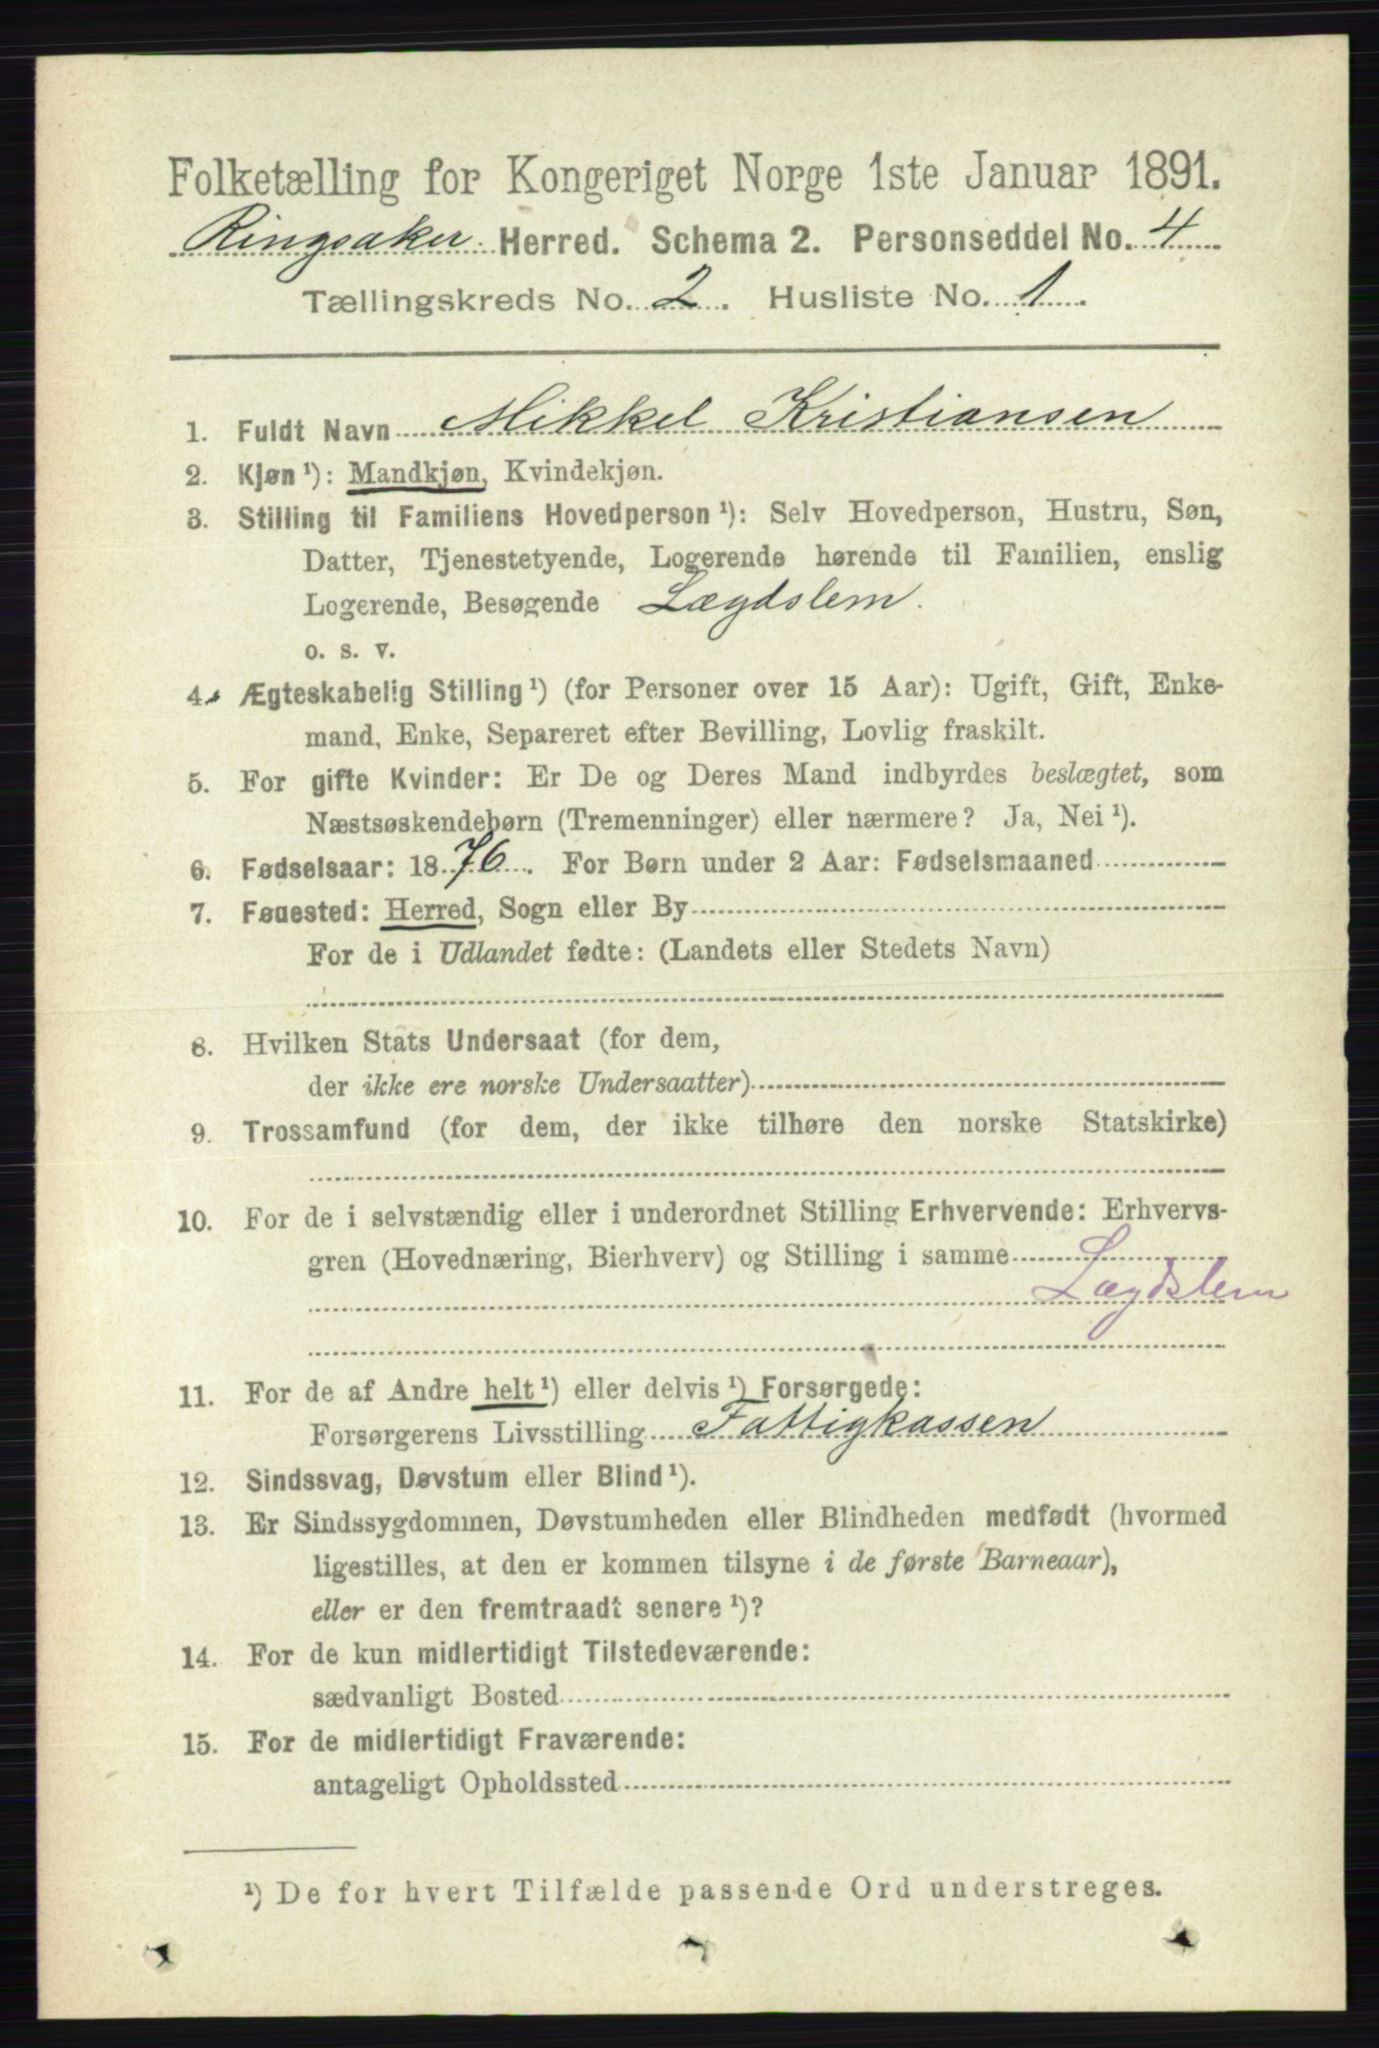 Folketælling for Kongeriget Norge 1ste Januar 1891.
Ringsaker Herred. Schema 2. Personseddel No. 4
Tællingskreds No. 2. Husliste No. 1.
1. Fuldt Navn Mikkel Kristiansen
2. Kjøn ¹): Mandkjøn, Kvindekjøn.
3. Stilling til Familiens Hovedperson ¹): Selv Hovedperson, Hustru, Søn,
Datter, Tjenestetyende, Logerende hørende til Familien, enslig
Logerende, Besøgende Lægdslem.
o. s. v.
4. Ægteskabelig Stilling ¹) (for Personer over 15 Aar): Ugift, Gift, Enke-
mand, Enke, Separeret efter Bevilling, Lovlig fraskilt.
5. For gifte Kvinder: Er De og Deres Mand indbyrdes beslægtet, som
Næstsøskendebørn (Tremenninger) eller nærmere? Ja, Nei ¹).
6. Fødselsaar: 1876. For Børn under 2 Aar: Fødselsmaaned
7. Fødested: Herred, Sogn eller By
For de i Udlandet fødte: (Landets eller Stedets Navn)
8. Hvilken Stats Undersaat (for dem,
der ikke ere norske Undersaatter)
9. Trossamfund (for dem, der ikke tilhøre den norske Statskirke)
10. For de i selvstændig eller i underordnet Stilling Erhvervende: Erhvervs-
gren (Hovednæring, Bierhverv) og Stilling i samme
Lægdslem
11. For de af Andre helt ¹) eller delvis ¹) Forsørgede:
Forsørgerens Livsstilling Fattigkassen
12. Sindssvag, Døvstum eller Blind ¹).
13. Er Sindssygdommen, Døvstumheden eller Blindheden medfødt (hvormed
ligestilles, at den er kommen tilsyne i de første Barneaar),
eller er den fremtraadt senere ¹)?
14. For de kun midlertidigt Tilstedeværende:
sædvanligt Bosted
15. For de midlertidigt Fraværende:
antageligt Opholdssted
¹) De for hvert Tilfælde passende Ord understreges.